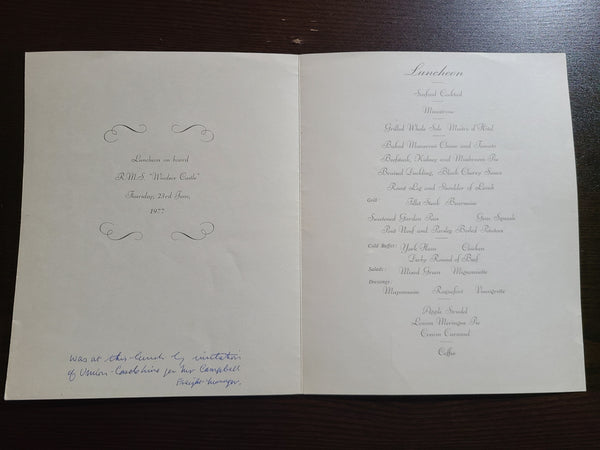 Luncheon on board
R.M.S. "Windsor Castle"
Thursday, 23rd June,
1977
was at this lunch by invitation
of Union-Castle Line per Mr Campbell
Freight Manager.
Luncheon
Seafood Cocktail
Minestrone
Grilled Whole Sole Maitre d'Hôtel
Baked Macaroni Cheese and Tomato
Beefsteak, Kidney and Mushroom Pie
Braised Duckling, Black Cherry Sauce
Roast Leg and Shoulder of Lamb
Grill Fillet Steak Bearnaise
Sweetened Garden Peas Gem Squash
Pont Neuf and Parsley Boiled Potatoes
Cold Buffet: York Ham Chicken
Derby Round of Beef
Salads: Mixed Green Mignonnette
Dressings
Mayonnaise Roquefort Vinaigrette
Apple Strudel
Lemon Meringue Pie
Cream Caramel
Coffee